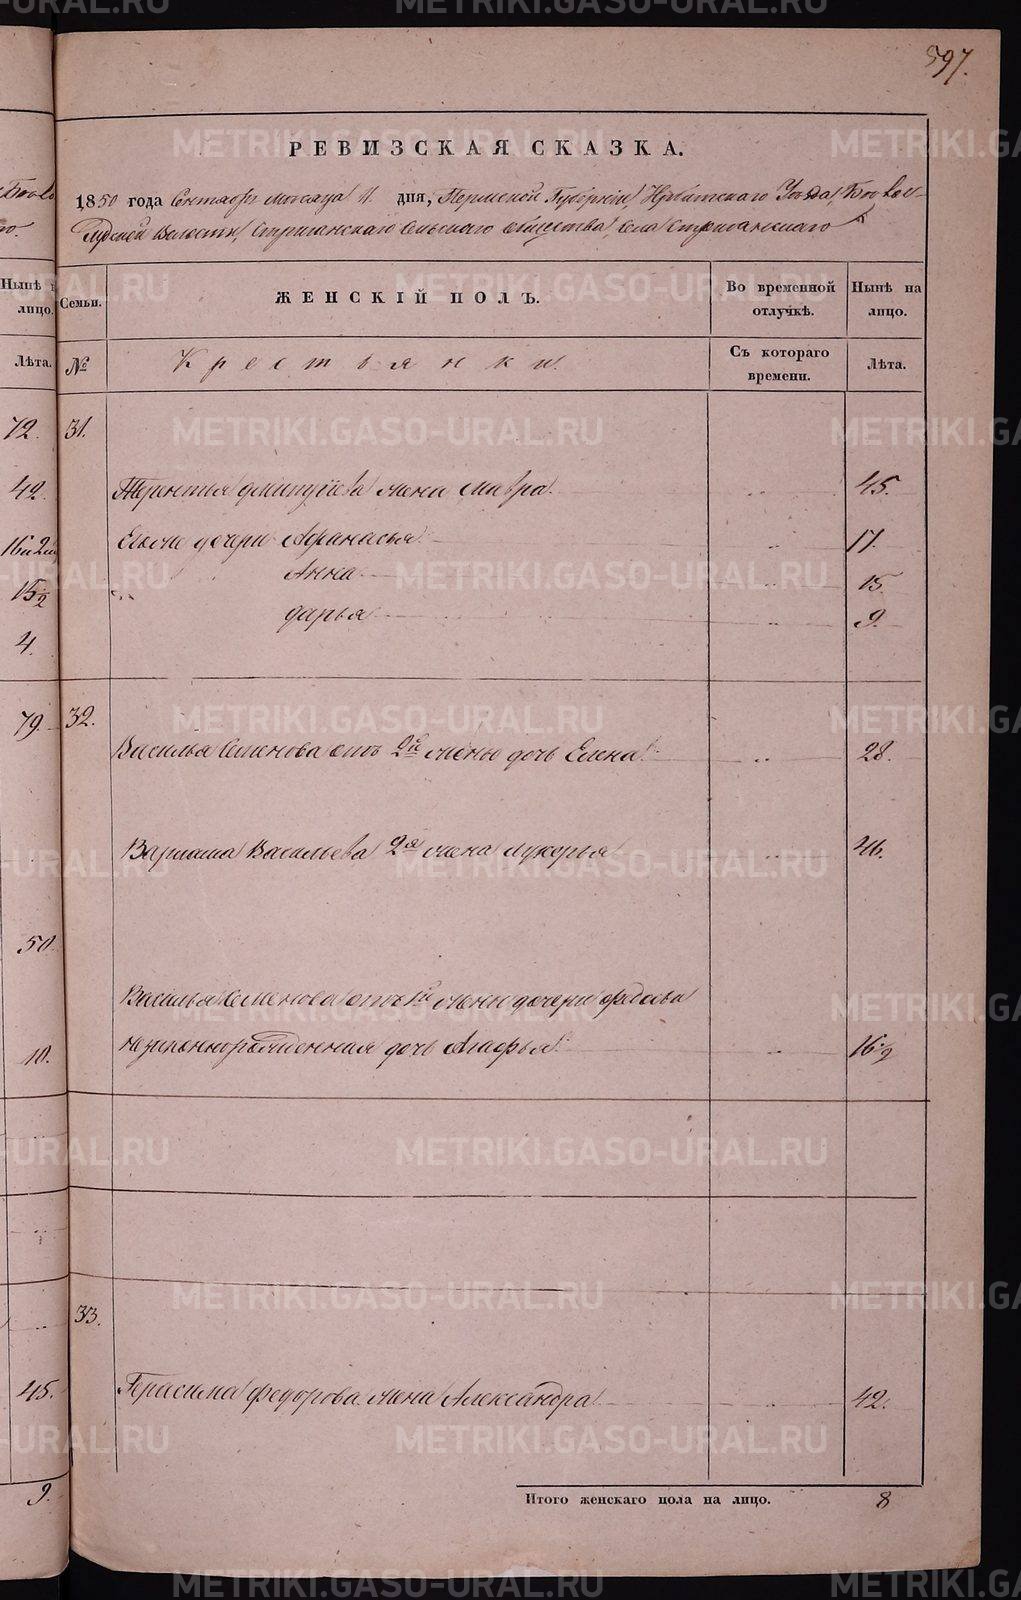 597.
РЕВИЗСКАЯ СКАЗКА.
1850 года Сентября месяца 11 дня, Пермской Губернии Ирбитского Уезда
Волости, Стриганского Сельского общества, Села Стриганского
Нынѣ
лицо.
Семьи.
ЖЕНСКІЙ ПОЛЪ.
Во временной отлучкѣ.
Нынѣ на лицо.
Лѣта.
№
Крестьянки.
Съ котораго времени.
Лѣта.
72. 31.
42. Терентья Дмитриева жена Мавра. 45.
Ихже дочери Афанасья 17.
Анна 15.
Дарья 9.
4.
79. 32.
Василья Семенова отъ 2й жены дочь Елена 28.
Варлама Васильева 2я жена Лукерья 46.
50.
Василья Семенова отъ 1й жены дочери
10. незаконнорожденная дочь Агафья 16½
33.
45. Герасима Федорова жена Александра 42.
9.
Итого женскаго пола на лицо. 8
METRIKI.GASO-URAL.RU